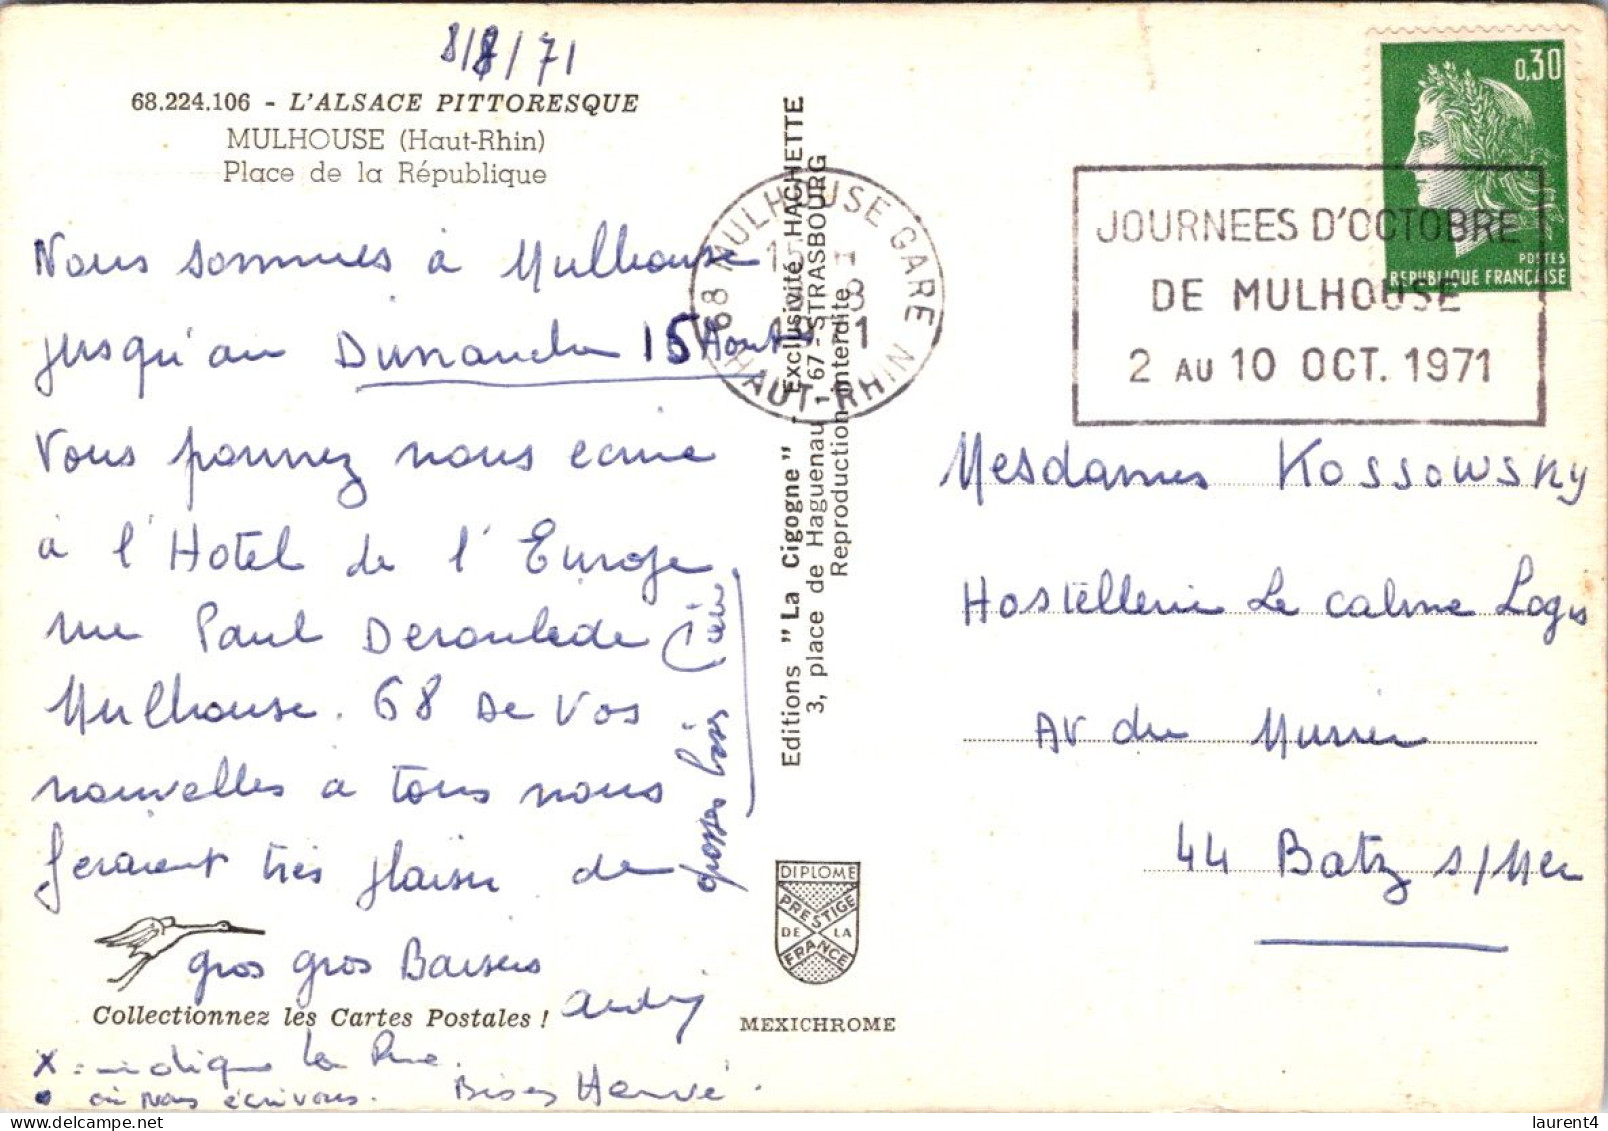 8/8/71
68.224.106 - L'ALSACE PITTORESQUE
MULHOUSE (Haut-Rhin)
Place de la République
Nous sommes à Mulhouse
jusqu'au Dimanche 15 Aout
Vous pouvez nous ecrire
à l'Hotel de l'Europe
rue Paul Deroulede
Mulhouse. 68 De vos
nouvelles a tous nous
feraient très plaisir de
gros gros Baisers
Collectionnez les Cartes Postales !
X = indique la Rue.
• où nous écrivons.
Bises Hervé.
grosses bises
Editions "La Cigogne" - Exclusivité HACHETTE
3, place de Haguenau - 67 - STRASBOURG
Reproduction interdite
DIPLOME
PRESTIGE
DE LA
FRANCE
MEXICHROME
68 MULHOUSE GARE
HAUT-RHIN
JOURNEES D'OCTOBRE
DE MULHOUSE
2 AU 10 OCT. 1971
0,30
POSTES
REPUBLIQUE FRANÇAISE
Mesdames Kossowsky
Hostellerie Le calme Logis
Av du
44 Batz s/Mer
laurent4